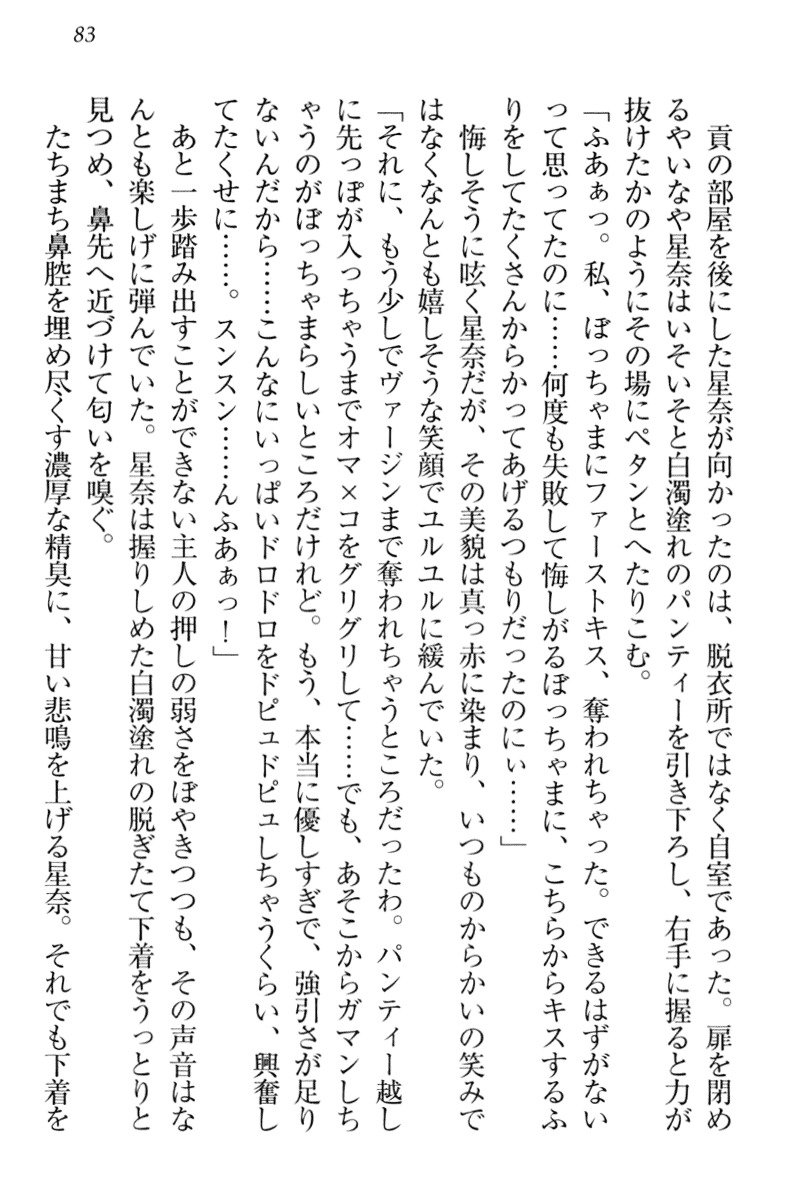 83
貢の部屋を後にした星奈が向かったのは、脱衣所ではなく自室であった。扉を閉め
るやいなや星奈はいそいそと白濁塗れのパンティーを引き下ろし、右手に握ると力が
抜けたかのようにその場にペタンとへたりこむ。
「ふあぁっ。私、ぼっちゃまにファーストキス、奪われちゃった。できるはずがない
って思ってたのに……何度も失敗して悔しがるぼっちゃまに、こちらからキスするふ
りをしてたくさんからかってあげるつもりだったのにぃ……」
悔しそうに呟く星奈だが、その美貌は真っ赤に染まり、いつものからかいの笑みで
はなくなんとも嬉しそうな笑顔でユルユルに緩んでいた。
「それに、もう少しでヴァージンまで奪われちゃうところだったわ。パンティー越し
に先っぽが入っちゃうまでオマ×コをグリグリして……でも、あそこからガマンしち
ゃうのがぼっちゃまらしいところだけれど。もう、本当に優しすぎで、強引さが足り
ないんだから……こんなにいっぱいドロドロをドピュドピュしちゃうくらい、興奮し
てたくせに……。スンスン……んふあぁっ！」
あと一歩踏み出すことができない主人の押しの弱さをぼやきつつも、その声音はな
んとも楽しげに弾んでいた。星奈は握りしめた白濁塗れの脱ぎたて下着をうっとりと
見つめ、鼻先へ近づけて匂いを嗅ぐ。
たちまち鼻腔を埋め尽くす濃厚な精臭に、甘い悲鳴を上げる星奈。それでも下着を